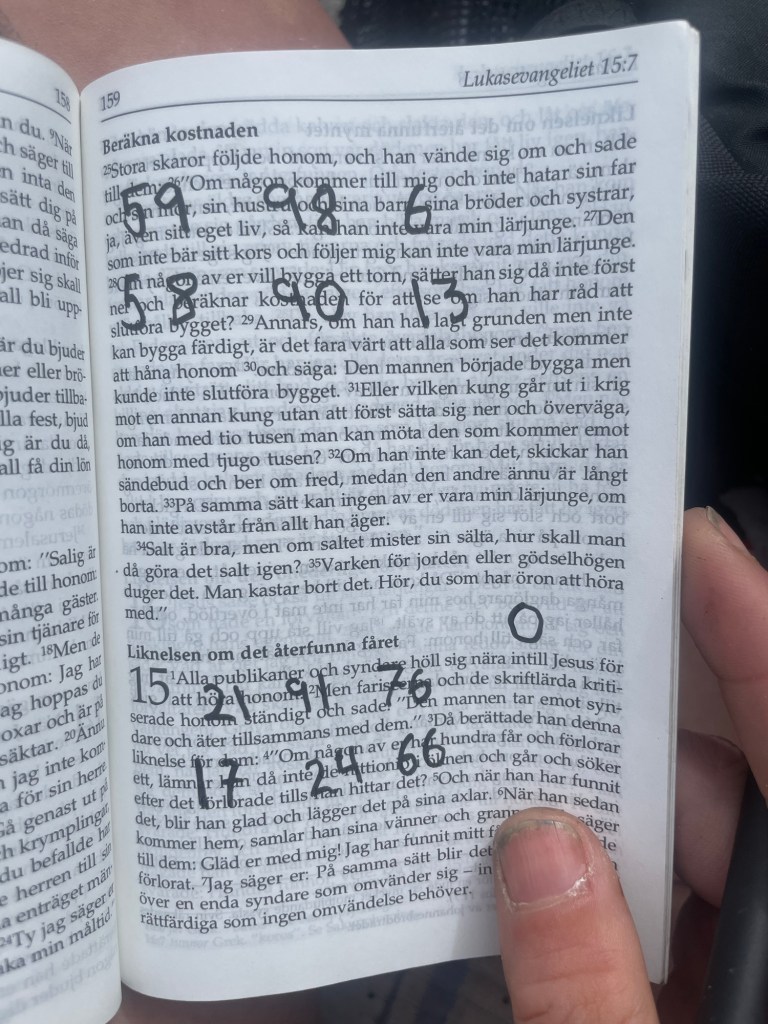 158
n du. ⁹När
ch säger till
n inta den
sätt dig på
an då säga
edrad inför
jer sig skall
all bli upp-
är du bjuder
ner eller brö-
bjuder tillba-
lla fest, bjud
ig är du då,
all få din lön
om: "Salig är
de till honom:
många gäster
sin tjänare för
ligt. ¹⁸Men de
onom: Jag har
ag hoppas du
oxar och är på
säktar. ²⁰Ännu
n jag inte kom
a för sin herre
Gå genast ut på
h krymplingar
du befallde har
e herren till sin
a enträget män
²⁴Ty jag säger er
aka min måltid."
159 Lukasevangeliet 15:7
Beräkna kostnaden
²⁵Stora skaror följde honom, och han vände sig om och sade
till dem: ²⁶"Om någon kommer till mig och inte hatar sin far
59 98 6
och sin mor, sin hustru och sina barn, sina bröder och systrar,
ja, även sitt eget liv, så kan han inte vara min lärjunge. ²⁷Den
som inte bär sitt kors och följer mig kan inte vara min lärjunge.
²⁸Om någon av er vill bygga ett torn, sätter han sig då inte först
58 90 13
ner och beräknar kostnaden för att se om han har råd att
slutföra bygget? ²⁹Annars, om han har lagt grunden men inte
kan bygga färdigt, är det fara värt att alla som ser det kommer
att håna honom ³⁰och säga: Den mannen började bygga men
kunde inte slutföra bygget. ³¹Eller vilken kung går ut i krig
mot en annan kung utan att först sätta sig ner och överväga,
om han med tio tusen man kan möta den som kommer emot
honom med tjugo tusen? ³²Om han inte kan det, skickar han
sändebud och ber om fred, medan den andre ännu är långt
borta. ³³På samma sätt kan ingen av er vara min lärjunge, om
han inte avstår från allt han äger.
³⁴Salt är bra, men om saltet mister sin sälta, hur skall man
då göra det salt igen? ³⁵Varken för jorden eller gödselhögen
duger det. Man kastar bort det. Hör, du som har öron att höra
med."
0
Liknelsen om det återfunna fåret
15 ¹Alla publikaner och syndare höll sig nära intill Jesus för
att höra honom. ²Men fariseerna och de skriftlärda kriti-
21 91 76
serade honom ständigt och sade: "Den mannen tar emot syn-
dare och äter tillsammans med dem." ³Då berättade han denna
liknelse för dem: ⁴"Om någon av er har hundra får och förlorar
17 24 66
ett, lämnar han då inte de nittionio i öknen och går och söker
efter det förlorade tills han hittar det? ⁵Och när han har funnit
det, blir han glad och lägger det på sina axlar. ⁶När han sedan
kommer hem, samlar han sina vänner och säger
till dem: Gläd er med mig! Jag har funnit mitt
förlorat. ⁷Jag säger er: På samma sätt blir det
över en enda syndare som omvänder sig –
rättfärdiga som ingen omvändelse behöver.